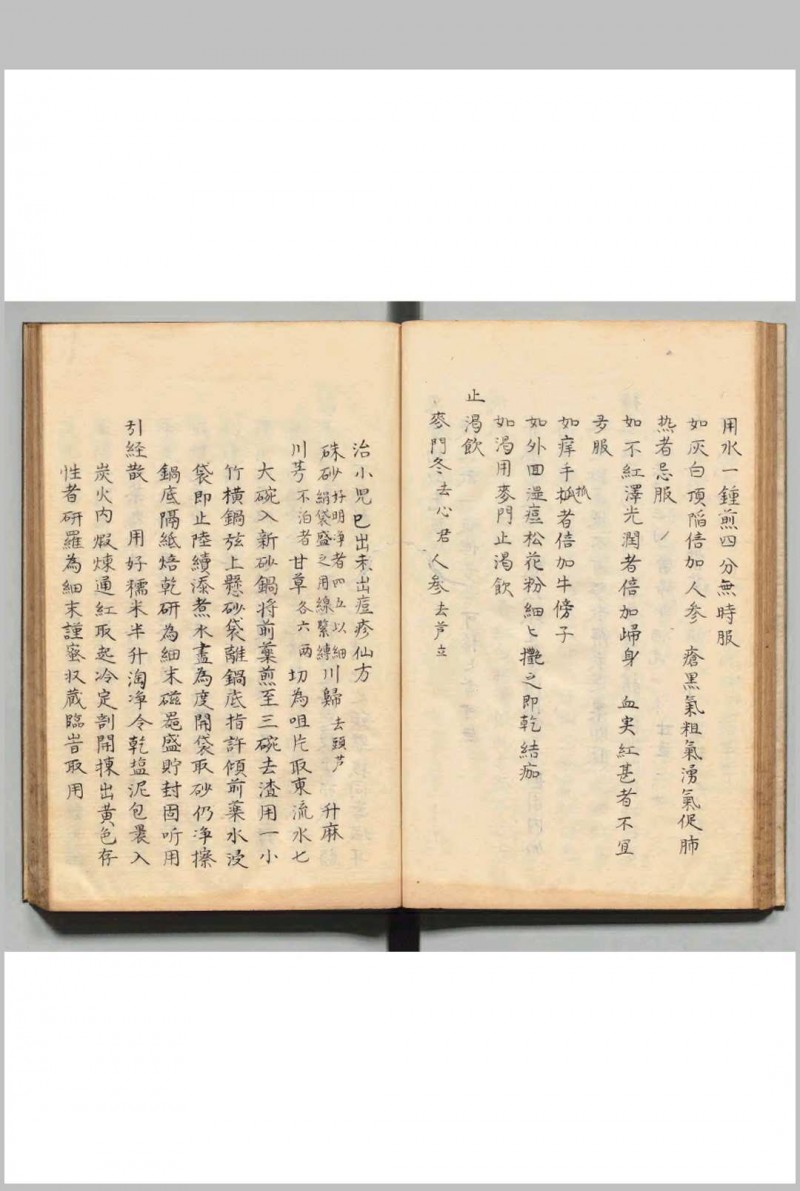 用水一鍾煎四分無時服
如灰白頂陷倍加人参 瘡黒氣粗氣湧氣促肺
热者忌服
如不紅澤光潤者倍加歸身 血実紅甚者不宜
多服
如痒手抓者倍加牛傍子
如外四湿瘟松花粉細匕摻之即乾結痂
如渴用麥門止渴飲
止渴飲
麥門冬去心君 人参去芦立
治小兒已出未出痘疹仙方
硃砂好明净者四五以細絹袋盛之用線緊縛 川歸去頭芦 升麻
川芎不泊者 甘草各六兩 切為咀片取東流水七
大碗入新砂鍋将前薬煎至三碗去渣用一小
竹横鍋弦上懸砂袋離鍋底指許傾前薬水浸
袋即止陸續添煮水盡為度開袋取砂仍净擦
鍋底隔紙焙乾研為細末磁噐盛貯封固听用
引経散 用好糯米半升淘净令乾塩泥包褁入
炭火内煆煉通紅取起冷定剖開揀出黄色存
性者研羅為細末謹蜜収蔵臨旹取用